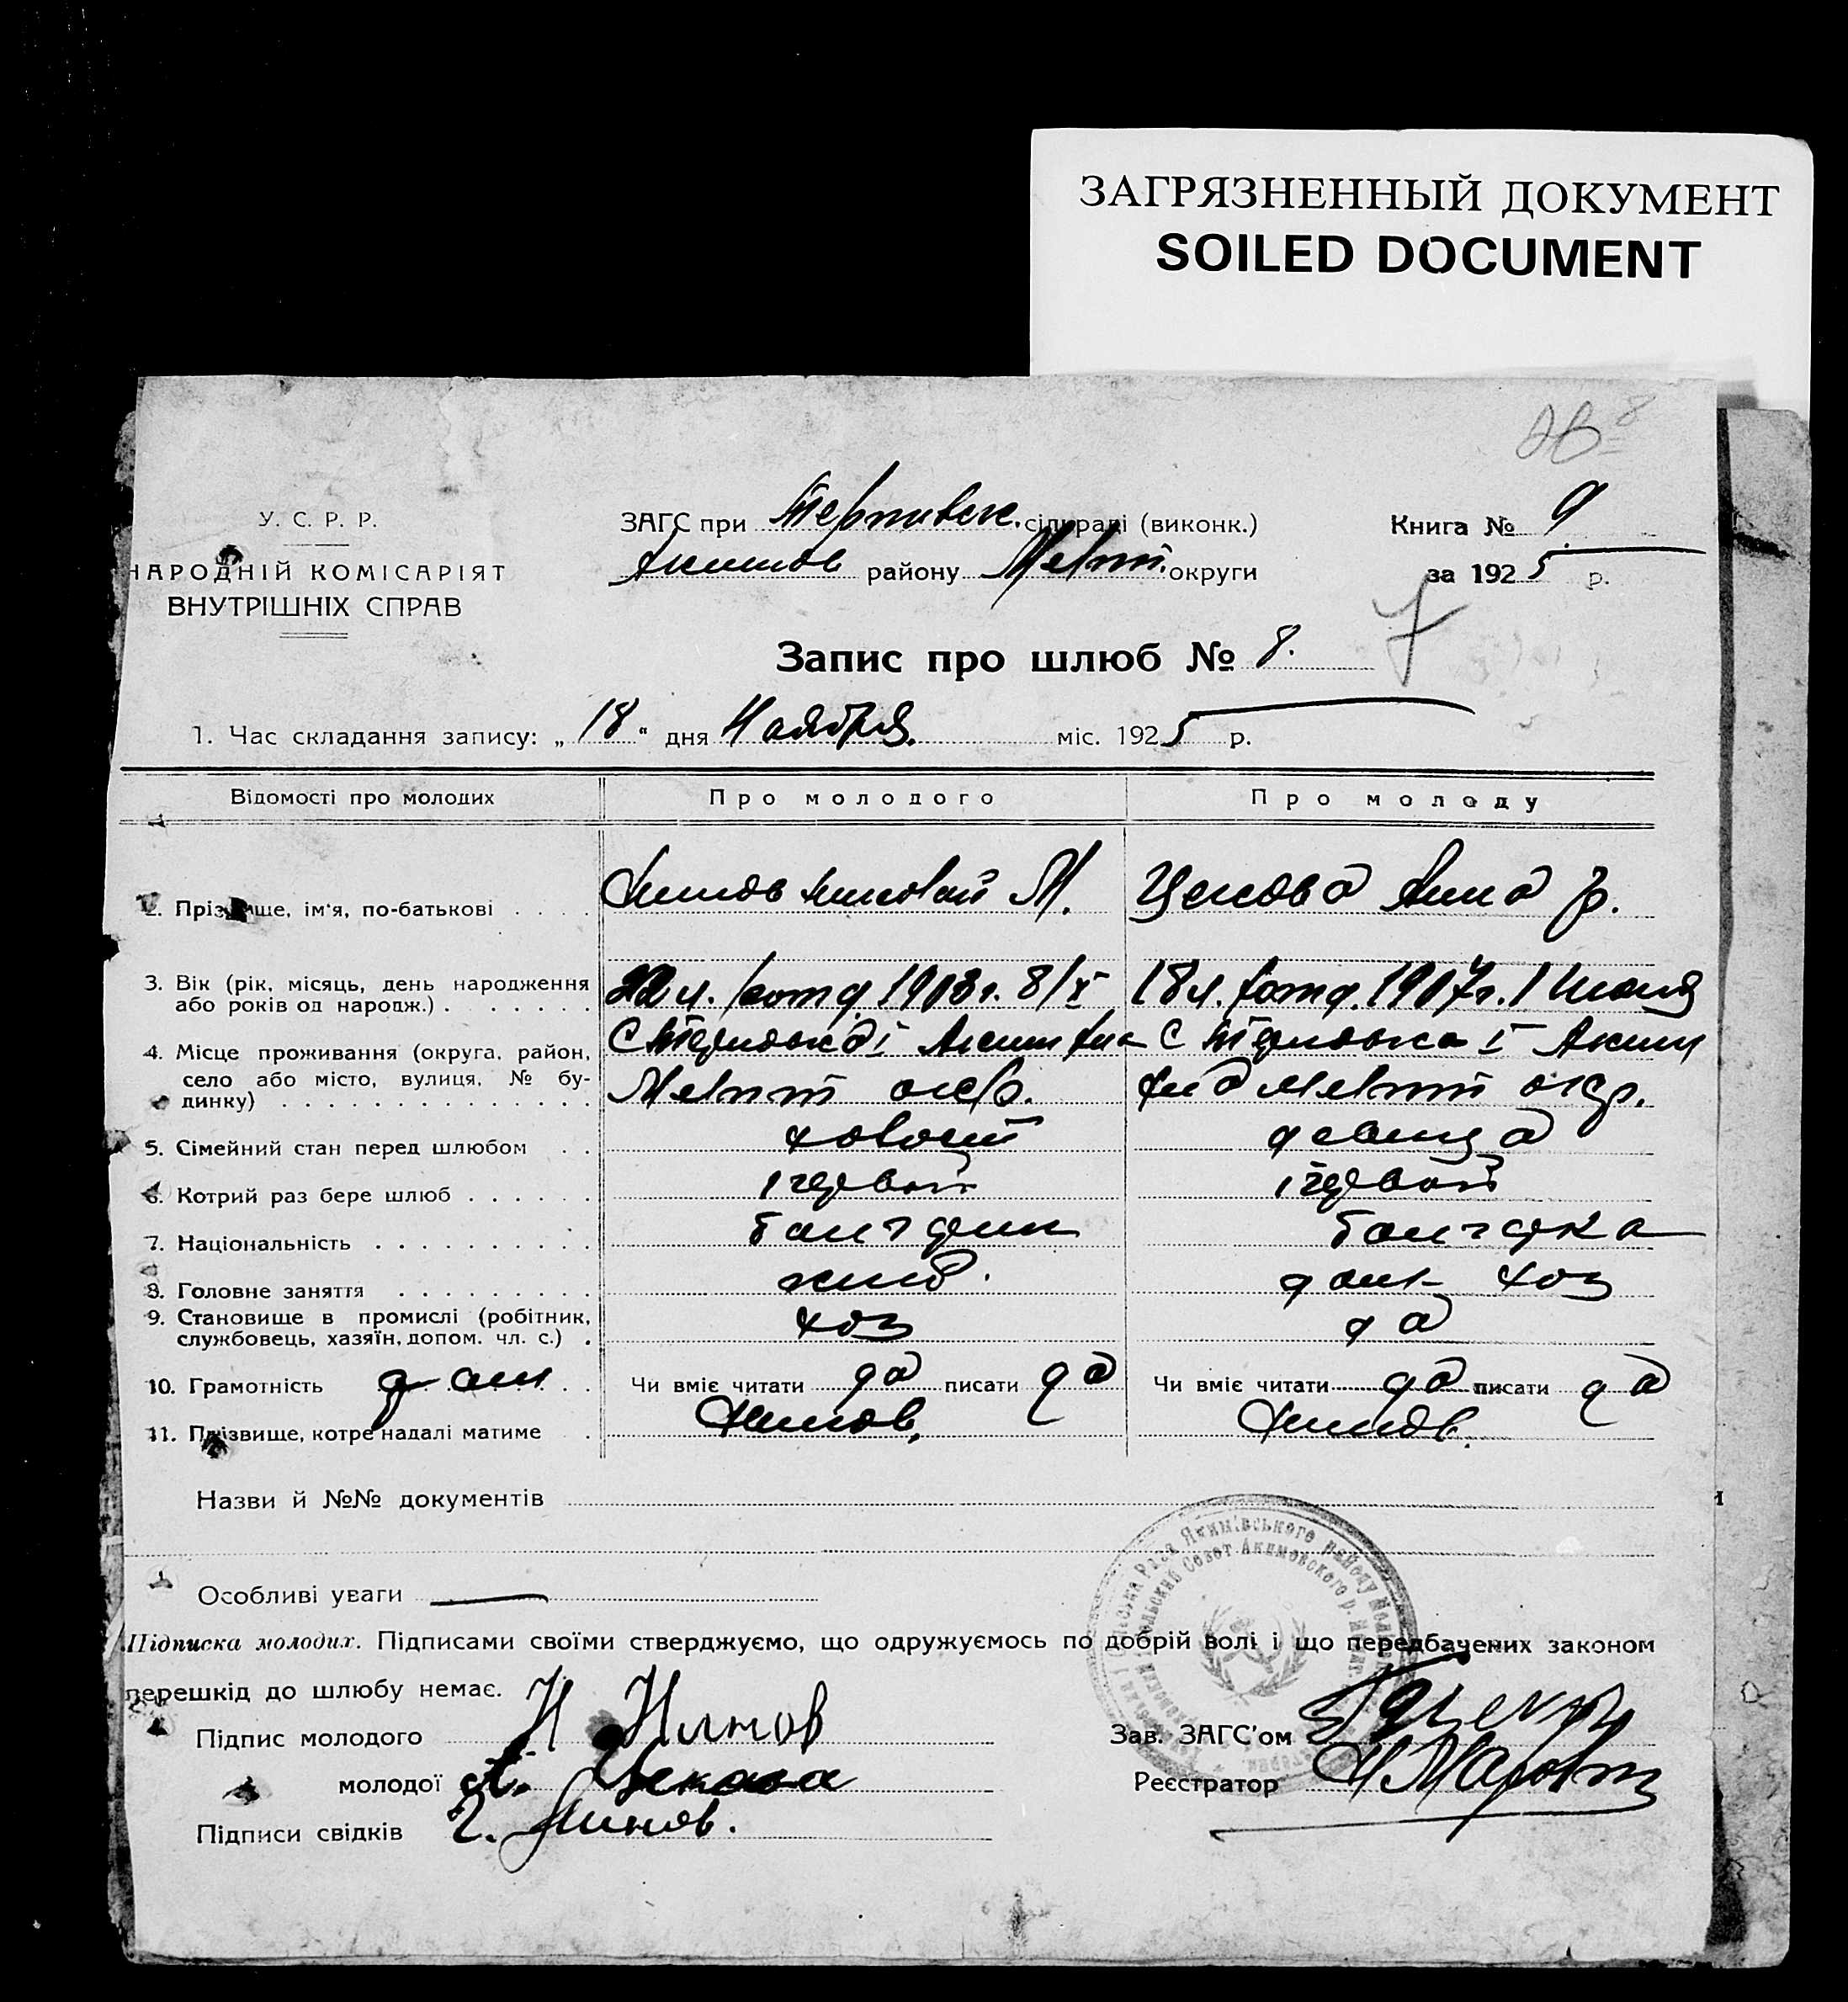 ЗАГРЯЗНЕННЫЙ ДОКУМЕНТ
SOILED DOCUMENT
У. С. Р. Р.
НАРОДНІЙ КОМІСАРІЯТ
ВНУТРІШНІХ СПРАВ
ЗАГС при сільраді (виконк.)
Акимов району Меліт. округи
Книга № 9
за 1925 р.
Запис про шлюб № 8.
7
1. Час складання запису: „18“ дня Ноября міс. 1925 р.
Відомості про молодих
Про молодого
Про молоду
2. Прізвище, ім'я, по-батькові . . . .
Николай М.
Цекова Анна
3. Вік (рік, місяць, день народження або років од народж.) . . . . . .
22 л. 1903 г. 8/X
18 л. 1907 г. 1 Июня
4. Місце проживання (округа, район, село або місто, вулиця, № будинку) . . . . . . . . . . . . .
С Терновка I
Мелит окр.
С Терновка I Аким
Мелит окр.
5. Сімейний стан перед шлюбом . .
холост
девица
6. Котрий раз бере шлюб . . . . . .
первый
первый
7. Національність . . . . . . . . . .
болгарин
болгарка
8. Головне заняття . . . . . . . . .
хлеб.
дом хоз
9. Становище в промислі (робітник, службовець, хазяїн, допом. чл. с.) .
хоз
да
10. Грамотність . .
Чи вміє читати да писати да
Чи вміє читати да писати да
11. Прізвище, котре надалі матиме .
Назви й №№ документів
Особливі уваги
Підписка молодих. Підписами своїми стверджуємо, що одружуємось по добрій волі і що передбачених законом
перешкід до шлюбу немає.
Підпис молодого Н
молодої А. Цекова
Підписи свідків
Зав. ЗАГС'ом
Реєстратор